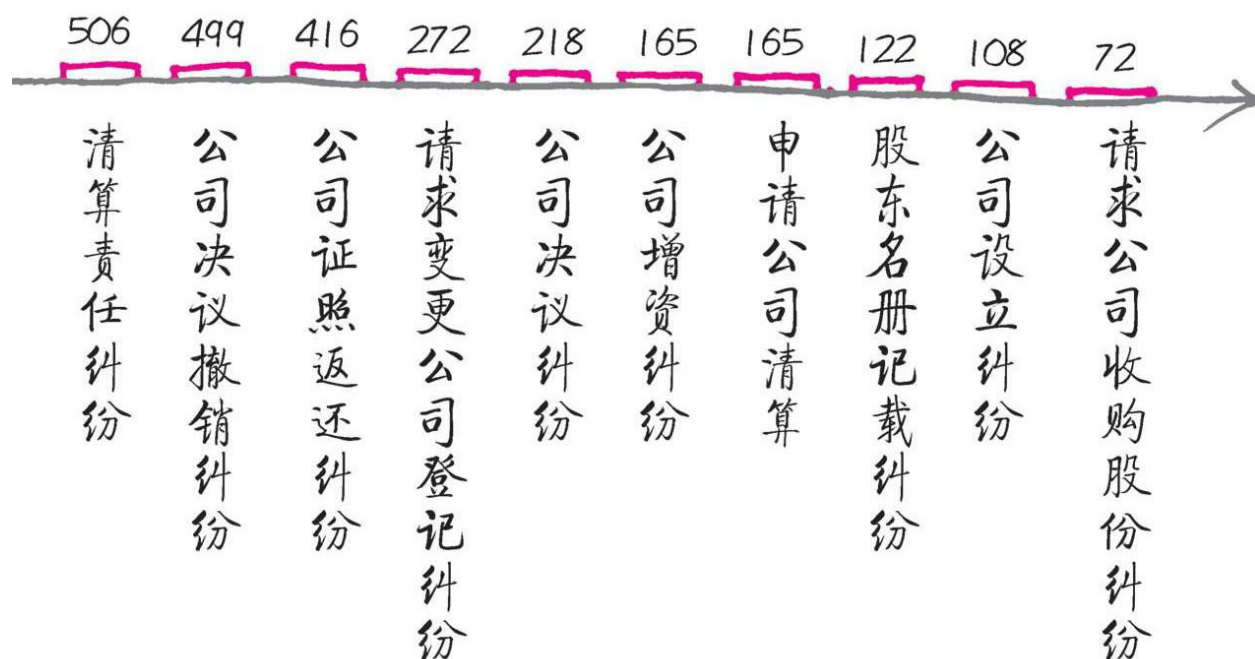 506 499 416 272 218 165 165 122 108 72
清算责任纠纷
公司决议撤销纠纷
公司证照返还纠纷
请求变更公司登记纠纷
公司决议纠纷
公司增资纠纷
申请公司清算
股东名册记载纠纷
公司设立纠纷
请求公司收购股份纠纷